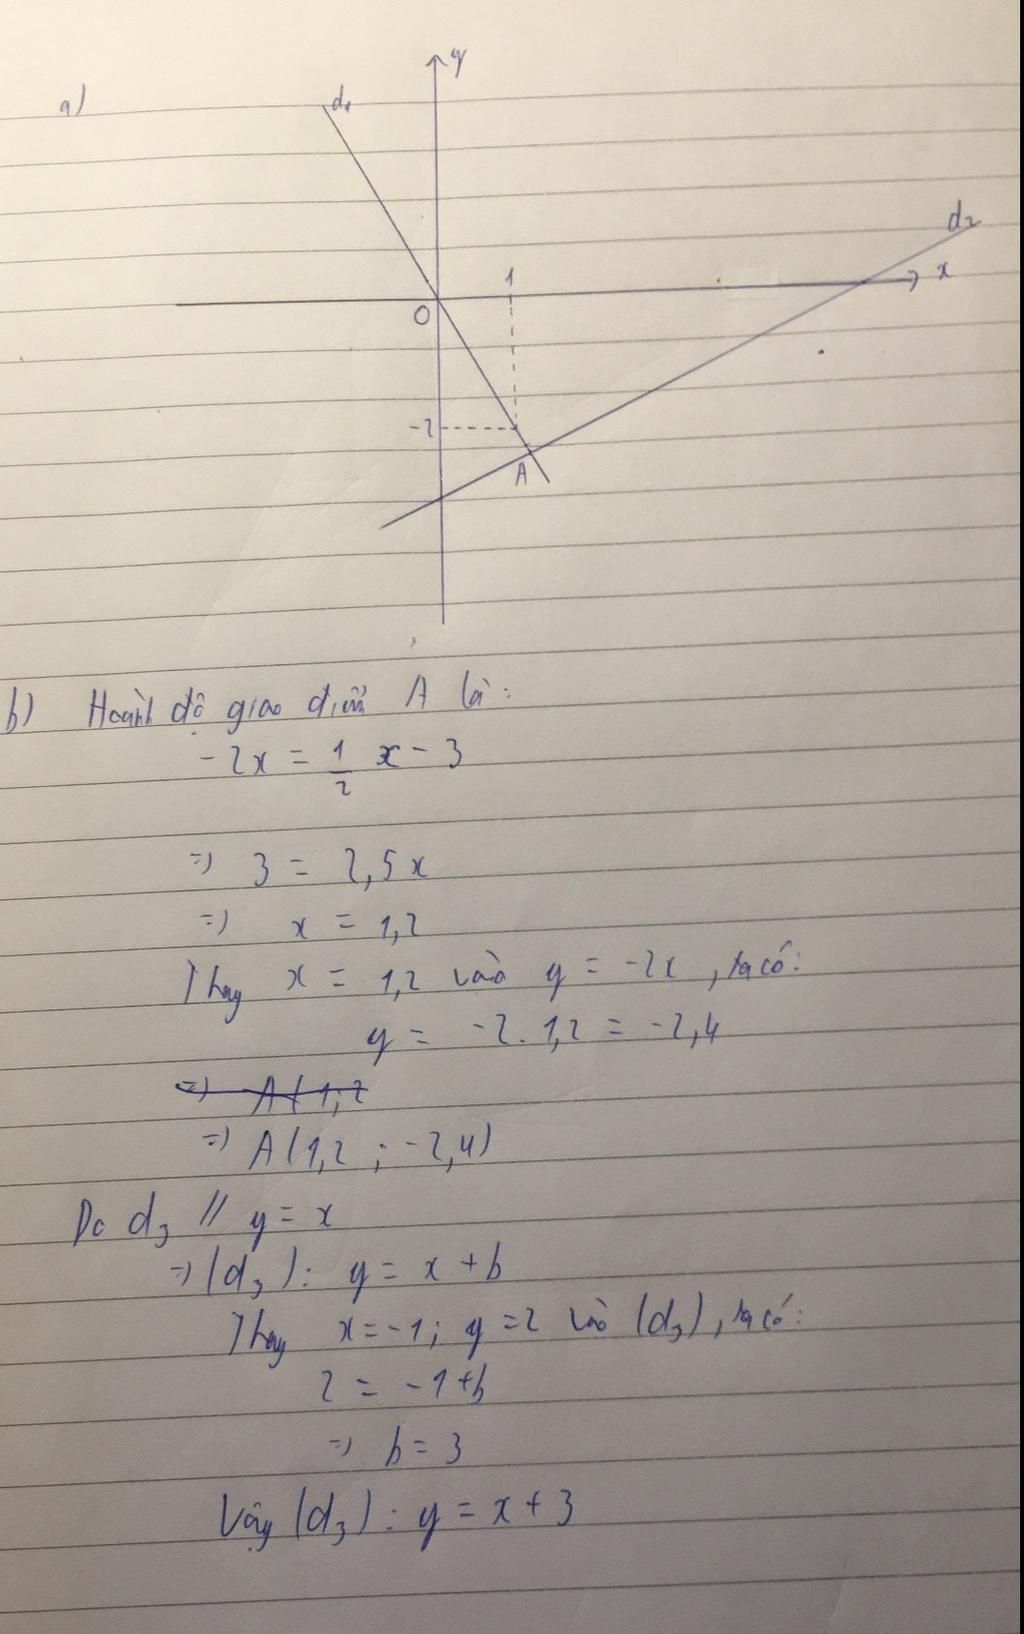 a)
y
d₁
d₂
1
x
O
-2
A
b) Hoành độ giao điểm A là:
-2x = 1/2 x - 3
=> 3 = 2,5x
=> x = 1,2
Thay x = 1,2 vào y = -2x, ta có:
y = -2. 1,2 = -2,4
=> A(1,2
=> A(1,2 ; -2,4)
Do d₃ // y = x
=> (d₃): y = x + b
Thay x = -1; y = 2 vào (d₃), ta có:
2 = -1 + b
=> b = 3
Vậy (d₃): y = x + 3